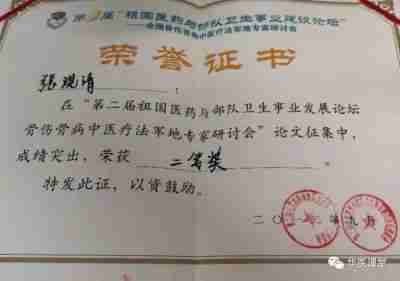 第2届"祖国医药与部队卫生事业建设论坛"
——全国骨伤骨病中医疗法军地专家研讨会
荣誉证书
张观清
在"第二届祖国医药与部队卫生事业发展论坛
骨伤骨病中医疗法军地专家研讨会"论文征集中,
成绩突出,荣获 二等奖
特发此证,以资鼓励。
二〇一 年九月
华医课堂